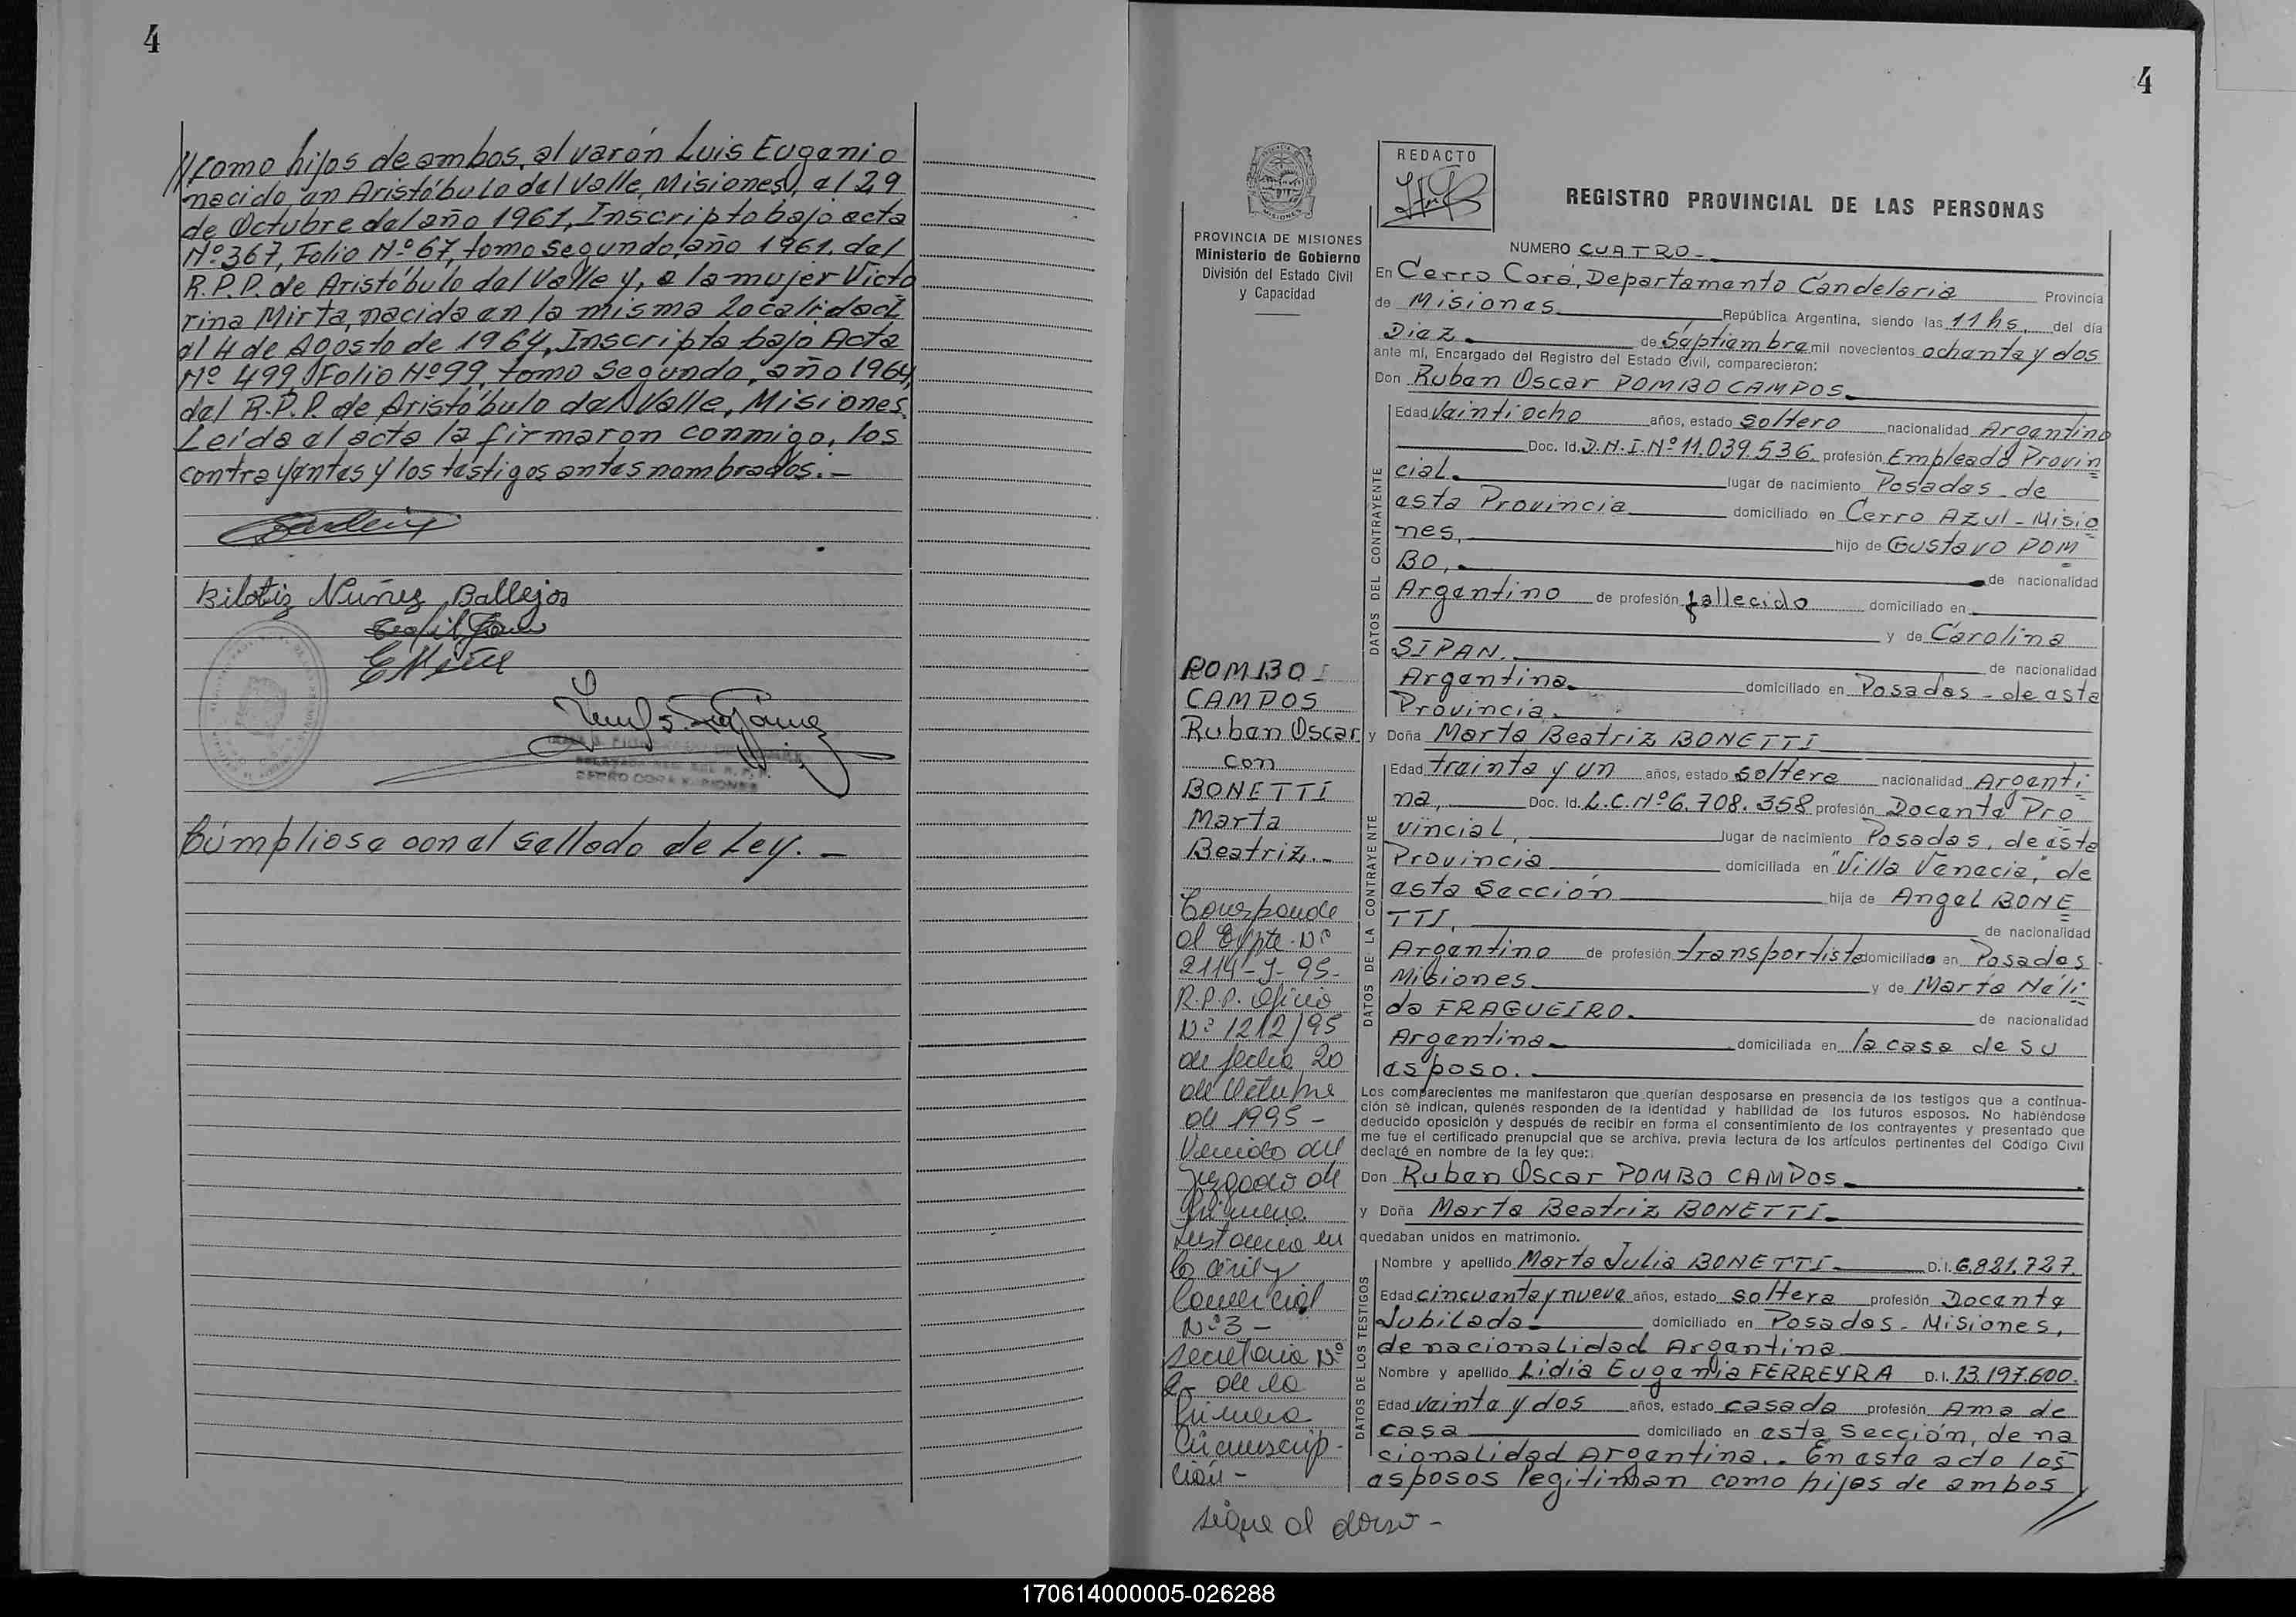 4
//Como hijos de ambos, al varón Luis Eugenio
nacido en Aristóbulo del Valle, Misiones, el 29
de Octubre del año 1961, Inscripto bajo acta
Nº 367, Folio Nº 67, tomo segundo, año 1961, del
R.P.P. de Aristóbulo del Valle y, a la mujer Victo
rina Mirta, nacida en la misma localidad
el 4 de Agosto de 1964, Inscripta bajo Acta
Nº 499, Folio Nº 99, tomo Segundo, año 1964,
del R.P.P. de Aristóbulo del Valle, Misiones.
Leída el acta la firmaron conmigo, los
contrayentes y los testigos antes nombrados.-
Nuñez Ballejos
CERRO CORA MISIONES
Cúmpliose con el Sellado de Ley. -
4
PROVINCIA DE MISIONES
Ministerio de Gobierno
División del Estado Civil
y Capacidad
POMBO
CAMPOS
Ruben Oscar
con
BONETTI
Marta
Beatriz.-
Corresponde
al Expte. Nº
2114-J-95-
R.P.P. Oficio
Nº 1212/95
de fecha 20
de Octubre
de 1995 -
Venido del
Juzgado de
Primera
Instancia en
lo Civil y
Comercial
Nº 3 -
Secretaria Nº
2 - de la
Primera
Circunscrip-
ción -
Sigue al dorso -
REDACTO
REGISTRO PROVINCIAL DE LAS PERSONAS
NUMERO CUATRO.-
En Cerro Corá, Departamento Candelaria Provincia
de Misiones República Argentina, siendo las 11 hs. del día
Diez de Septiembre mil novecientos ochenta y dos
ante mí, Encargado del Registro del Estado Civil, comparecieron:
Don Ruben Oscar POMBO CAMPOS.
DATOS DEL CONTRAYENTE
Edad Veintiocho años, estado Soltero nacionalidad Argentino
Doc. Id. D.N.I. Nº 11.039.536. profesión Empleado Provin
cial. lugar de nacimiento Posadas - de
esta Provincia domiciliado en Cerro Azul - Misio
nes, hijo de Gustavo POM
BO, de nacionalidad
Argentino de profesión fallecido domiciliado en
y de Carolina
SIPAN. de nacionalidad
Argentina domiciliado en Posadas - de esta
Provincia.
y Doña Marta Beatriz BONETTI
DATOS DE LA CONTRAYENTE
Edad treinta y un años, estado soltera nacionalidad Argenti
na, Doc. Id. L.C. Nº 6.708.358 profesión Docente Pro
vincial, lugar de nacimiento Posadas, de esta
Provincia domiciliada en "Villa Venecia", de
esta Sección hija de Angel BONE
TTI, de nacionalidad
Argentino de profesión transportista domiciliado en Posadas
Misiones y de Marta Néli
da FRAGUEIRO. de nacionalidad
Argentina domiciliada en la casa de su
esposo.
Los comparecientes me manifestaron que querían desposarse en presencia de los testigos que a continua-
ción se indican, quienés responden de la identidad y habilidad de los futuros esposos. No habiéndose
deducido oposición y después de recibir en forma el consentimiento de los contrayentes y presentado que
me fue el certificado prenupcial que se archiva, previa lectura de los artículos pertinentes del Código Civil
declaré en nombre de la ley que:
Don Ruben Oscar POMBO CAMPOS.
y Doña Marta Beatriz BONETTI.
quedaban unidos en matrimonio.
DATOS DE LOS TESTIGOS
Nombre y apellido Marta Julia BONETTI D.I. 6.821.727.
Edad cincuenta y nueve años, estado soltera profesión Docente
Jubilada domiciliado en Posadas - Misiones,
de nacionalidad Argentina
Nombre y apellido Lidia Eugenia FERREYRA D.I. 13.197.600.
Edad veinte y dos años, estado casada profesión Ama de
casa domiciliado en esta Sección, de na
cionalidad Argentina.- En este acto los
esposos legitiman como hijos de ambos //
170614000005-026288